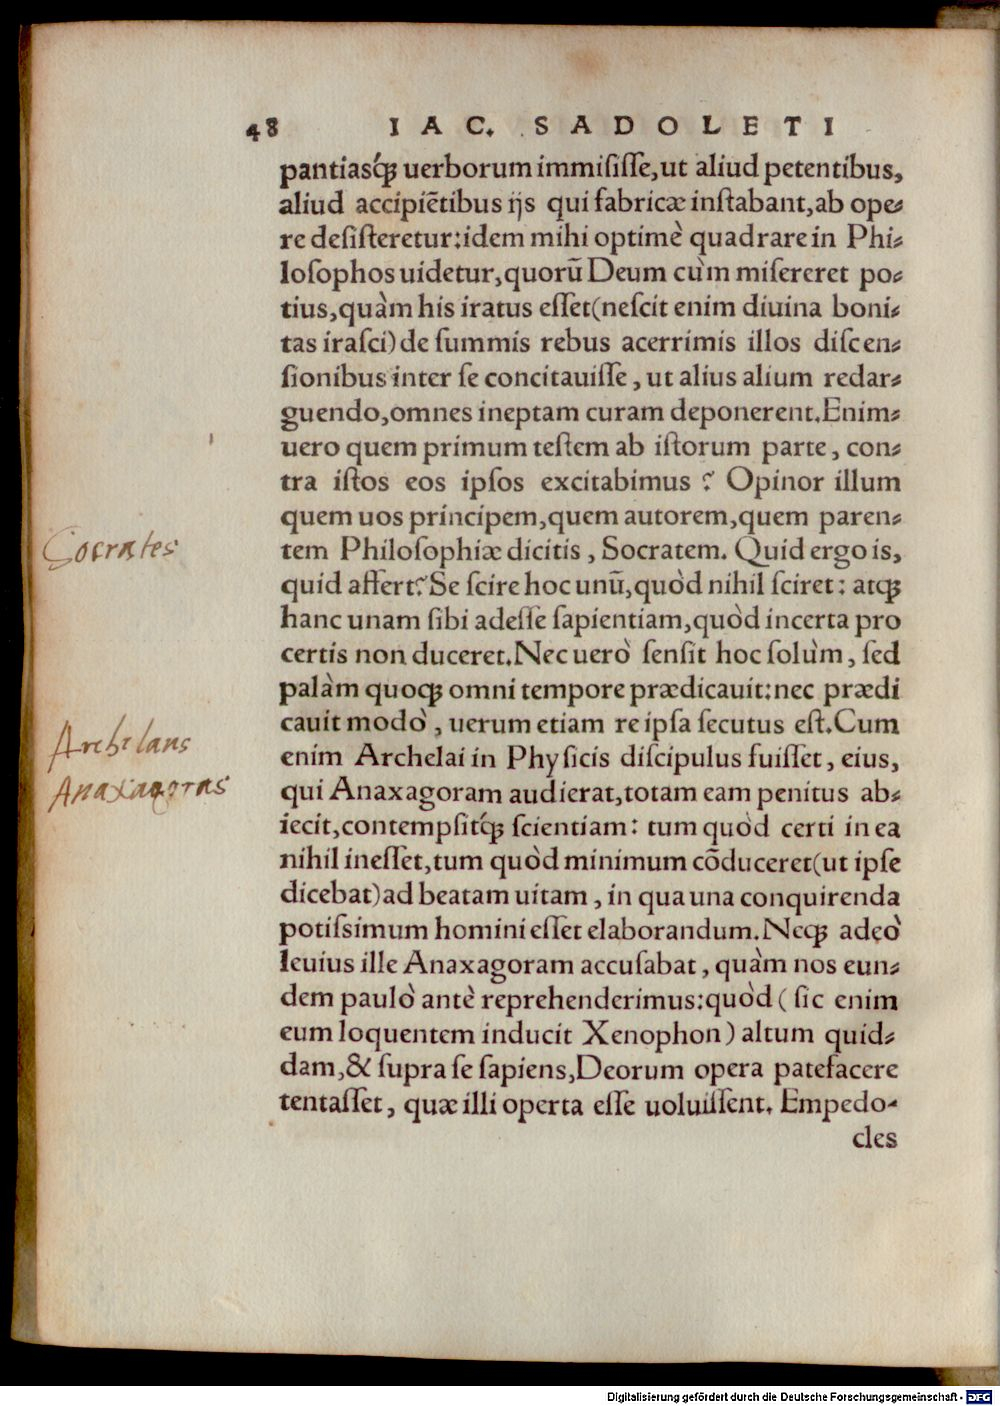 48 IAC. SADOLETI
pantiasq́ꝫ uerborum immisiſſe, ut aliud petentibus,
aliud accipiẽtibus ijs qui fabricæ inſtabant, ab ope⸗
re deſiſteretur: idem mihi optimè quadrare in Phi⸗
loſophos uidetur, quorũ Deum cùm miſereret po⸗
tius, quàm his iratus eſſet (neſcit enim diuina boni⸗
tas iraſci) de ſummis rebus acerrimis illos diſcen⸗
ſionibus inter ſe concitauiſſe, ut alius alium redar⸗
guendo, omnes ineptam curam deponerent. Enim⸗
uero quem primum teſtem ab iſtorum parte, con⸗
tra iſtos eos ipſos excitabimus? Opinor illum
quem uos principem, quem autorem, quem paren⸗
Socrates
tem Philoſophiæ dicitis, Socratem. Quid ergo is,
quid affert? Se ſcire hoc unũ, quòd nihil ſciret: atqꝫ
hanc unam ſibi adeſſe ſapientiam, quòd incerta pro
certis non duceret. Nec uerò ſenſit hoc ſolùm, ſed
palàm quoqꝫ omni tempore prædicauit: nec prædi
cauit modò, uerum etiam re ipſa ſecutus eſt. Cum
Archelaus
enim Archelai in Phyſicis diſcipulus fuiſſet, eius,
Anaxagoras
qui Anaxagoram audierat, totam eam penitus ab⸗
iecit, contempſitq́ꝫ ſcientiam: tum quòd certi in ea
nihil ineſſet, tum quòd minimum cõduceret (ut ipſe
dicebat) ad beatam uitam, in qua una conquirenda
potiſsimum homini eſſet elaborandum. Neqꝫ adeò
leuius ille Anaxagoram accuſabat, quàm nos eun⸗
dem paulò antè reprehenderimus: quòd (ſic enim
eum loquentem inducit Xenophon) altum quid⸗
dam, & ſupra ſe ſapiens, Deorum opera patefacere
tentaſſet, quæ illi operta eſſe uoluiſſent. Empedo-
cles
Digitalisierung gefördert durch die Deutsche Forschungsgemeinschaft - DFG